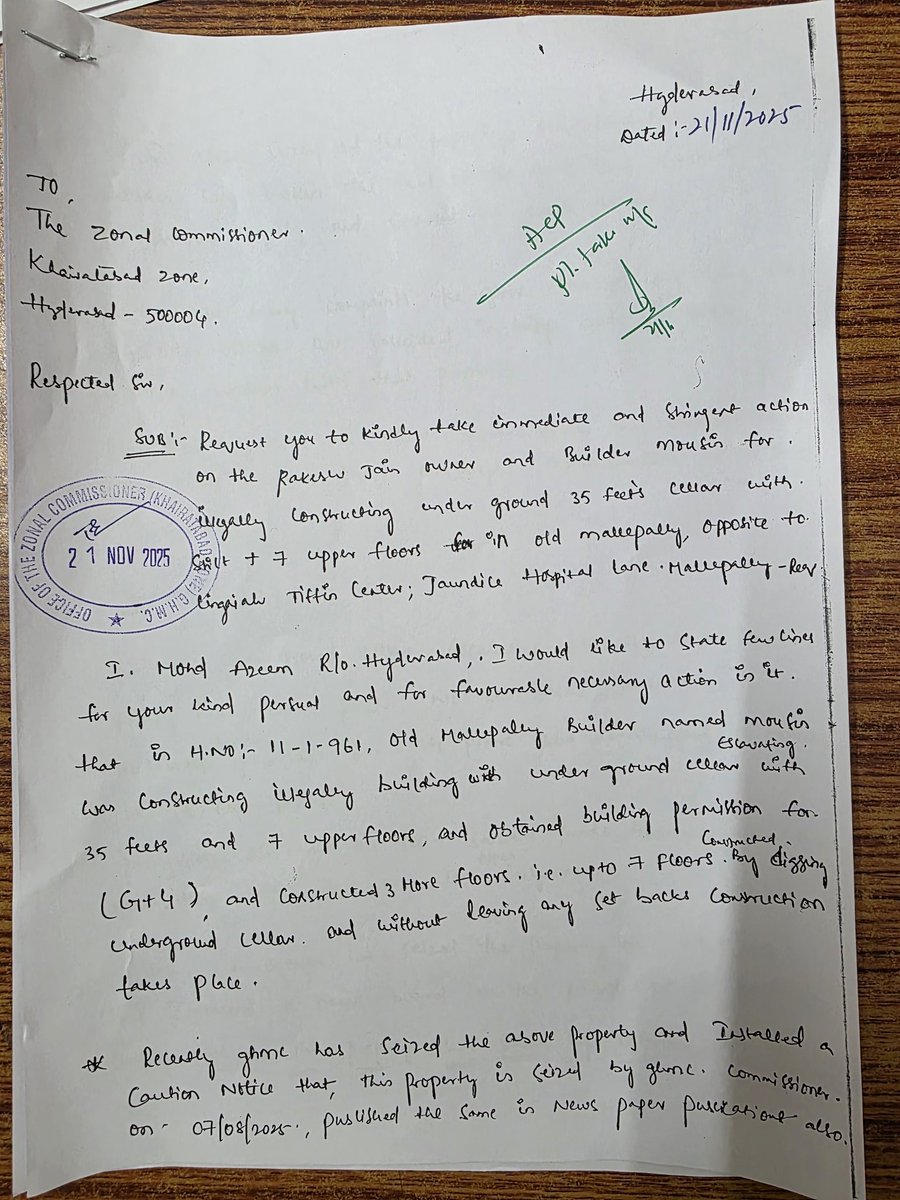 Hyderabad,
Dated :- 21/11/2025
TO,
The Zonal Commissioner.
Khairatabad Zone,
Hyderabad - 500004.
ACP
Pl. take n/c
21/11
Respected Sir,
SUB:- Request you to kindly take immediate and Stringent action
on the Rakesh Jain owner and Builder Mousin for.
illegally constructing under ground 35 feets cellar with.
Stilt + 7 upper floors in old mallepally, opposite to
lingaiah Tiffin Center; Jaundice Hospital Lane. Mallepally-Rear
OFFICE OF THE ZONAL COMMISSIONER (KHAIRATABAD ZONE) G.H.M.C.
21 NOV 2025
I. Mohd Azeem R/o. Hyderabad,. I would like to State few lines
for your kind persual and for favourable necessary action is it.
that in H.NO:- 11-1-961, Old Mallepally Builder named Mousin
was constructing illegally building with Escavating. under ground cellar with
35 feets and 7 upper floors, and obtained building permission for
(G+4), and constructed 3 More floors. i.e. upto 7 floors. Constructed. By digging
underground cellar. and without leaving any set backs construction
takes place.
* Recently ghmc has Seized the above property and Installed a
Caution Notice that, this property is seized by ghmc. Commissioner.
on - 07/08/2025., published the same in News paper publications also.